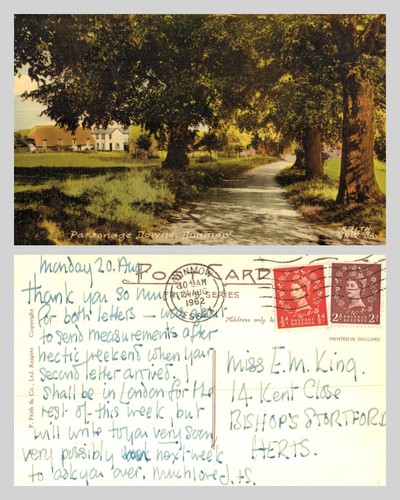 Parsonage Downs, Dunmow
FRITH
Monday 20. Aug.
POST CARD
FRITH'S SERIES
DUNMOW
10.30AM
AUG
1962
ESSEX
½d
2d
POSTAGE
REVENUE
Thank you so much
for both letters –
to send measurements after
hectic weekend when your
second letter arrived. I
shall be in London for the
rest of this week, but
will write to you very soon
very possibly next week
to ask you over. Much love J.S.
Copyright
F. Frith & Co., Ltd. Reigate
Address only to
PRINTED IN ENGLAND
Miss E.M. King.
14 Kent Close
BISHOP'S STORTFORD
HERTS.